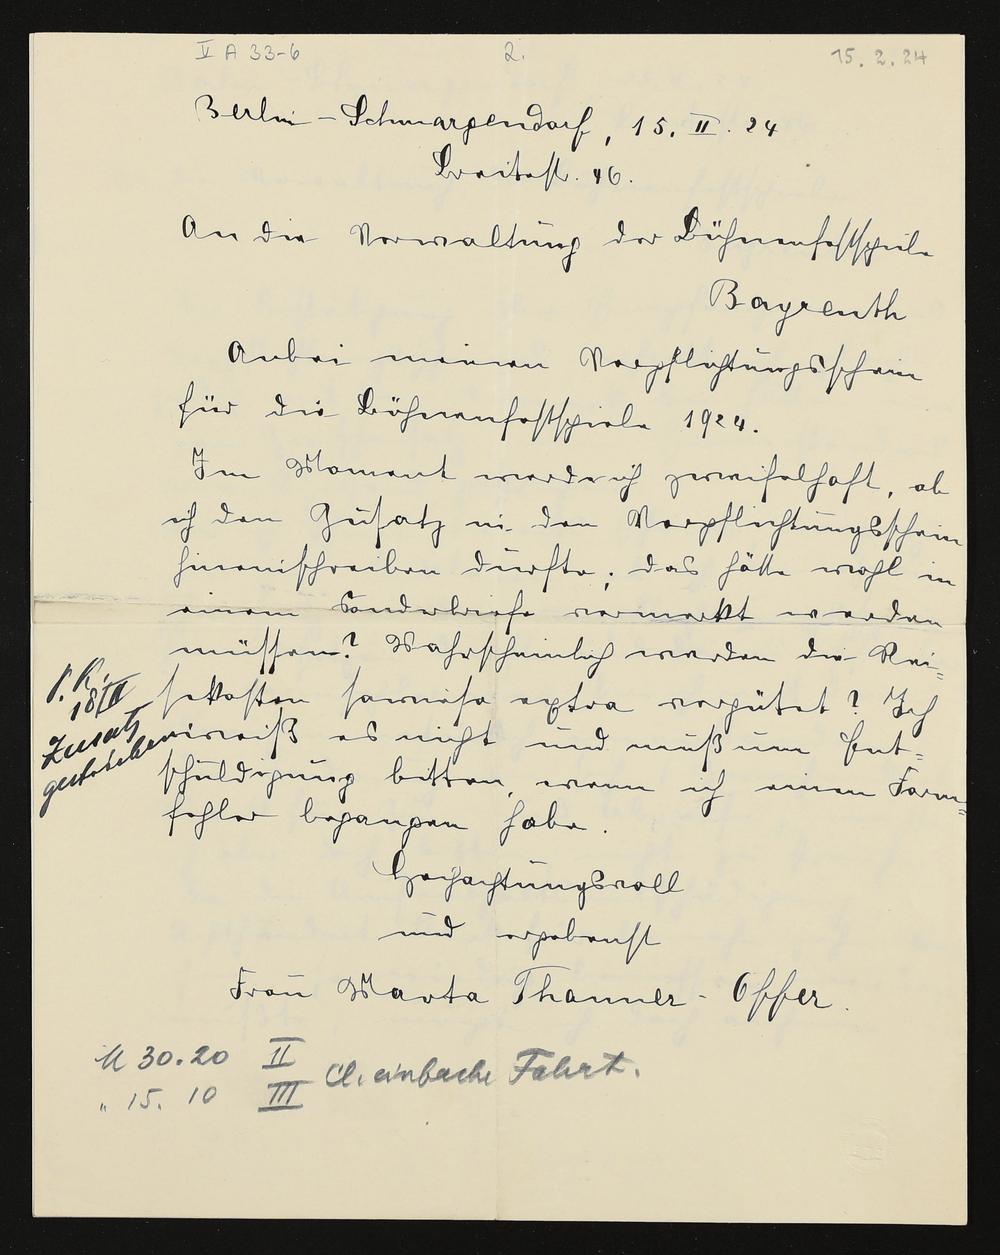 V A 33-6
2.
15. 2. 24
Berlin-Schmargendorf, 15. II. 24
Breitestr. 46.
An die Verwaltung der Bühnenfestspiele
Bayreuth
Anbei meinen Verpflichtungsschein
für die Bühnenfestspiele 1924.
Im Moment werde ich zweifelhaft, ob
ich den Zusatz in den Verpflichtungsschein
hineinschreiben durfte; das hätte wohl in
einem Sonderbriefe vermerkt werden
müssen? Wahrscheinlich werden die Rei=
sekosten sowieso extra vergütet? Ich
weiß es nicht und muß um Ent=
schuldigung bitten, wenn ich einen Form=
fehler begangen habe.
Hochachtungsvoll
und ergebenst
Frau Marta Thanner-Offer.
18/II
Zusatz
gestrichen
M 30.20 II Cl. einfache Fahrt.
" 15. 10 III